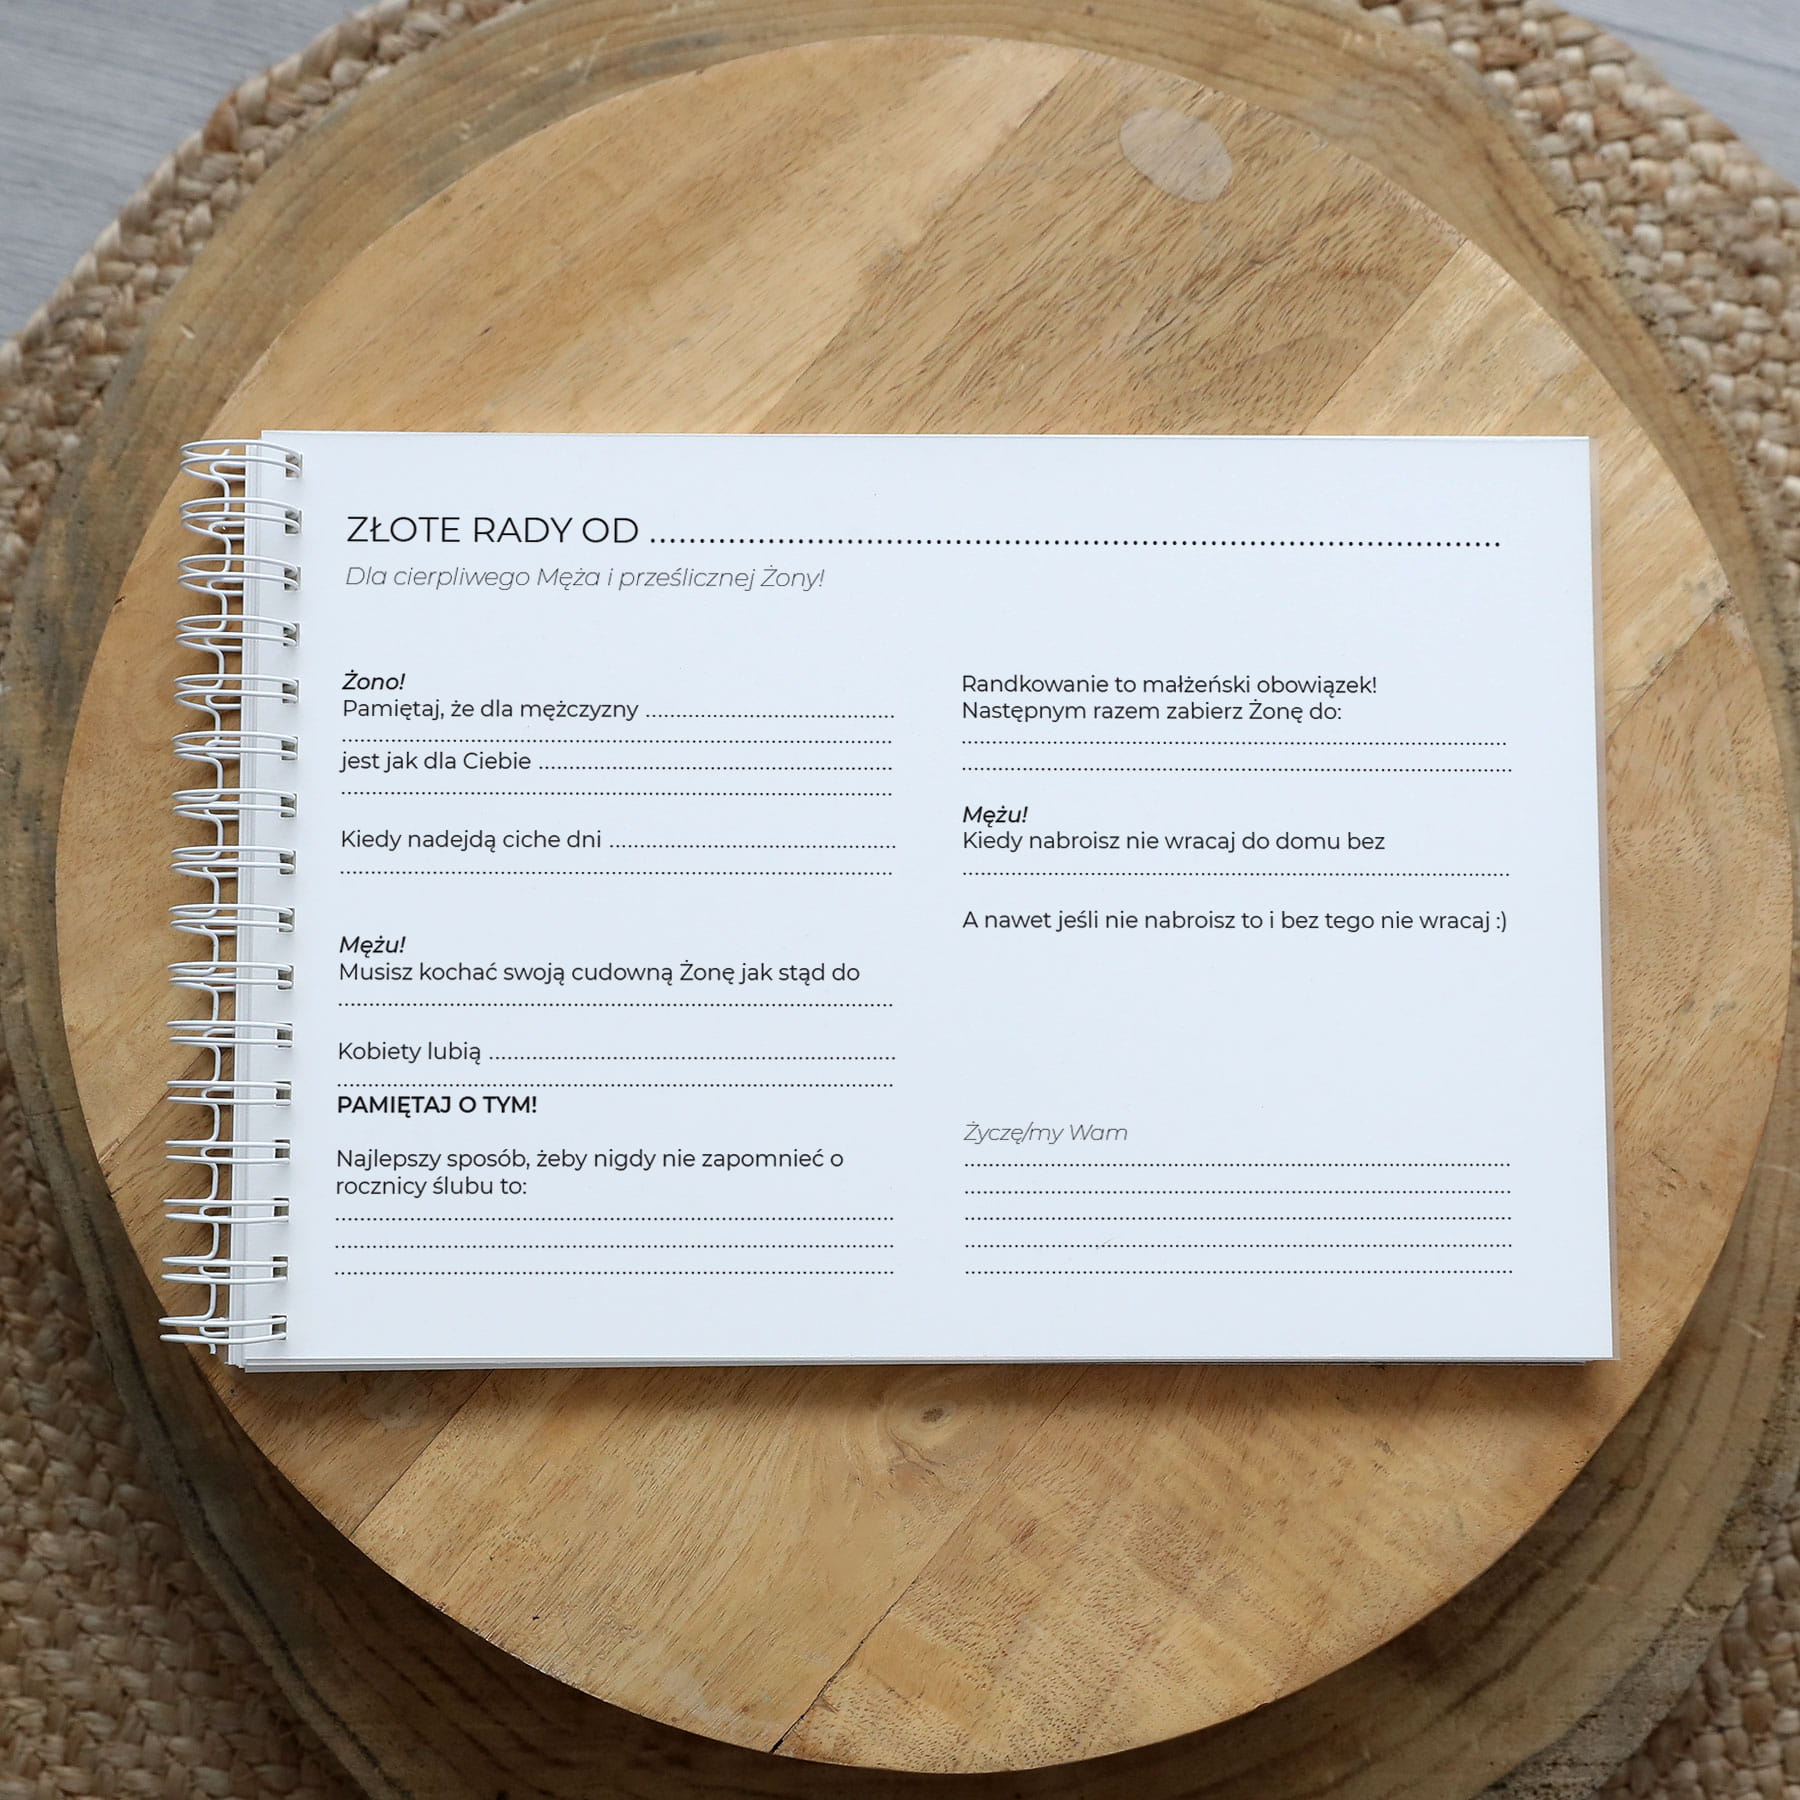 ZŁOTE RADY OD ..........
Dla cierpliwego Męża i prześlicznej Żony!
Żono!
Pamiętaj, że dla mężczyzny ..........
..........
jest jak dla Ciebie ..........
..........
Kiedy nadejdą ciche dni ..........
..........
Mężu!
Musisz kochać swoją cudowną Żonę jak stąd do
..........
Kobiety lubią ..........
..........
PAMIĘTAJ O TYM!
Najlepszy sposób, żeby nigdy nie zapomnieć o
rocznicy ślubu to:
..........
..........
..........
Randkowanie to małżeński obowiązek!
Następnym razem zabierz Żonę do:
..........
..........
Mężu!
Kiedy nabroisz nie wracaj do domu bez
..........
A nawet jeśli nie nabroisz to i bez tego nie wracaj :)
Życzę/my Wam
..........
..........
..........
..........
..........